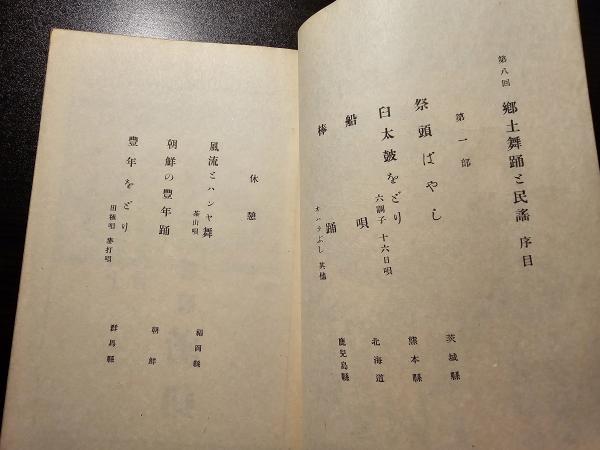 第八回 郷土舞踊と民謠 序目
第一部
祭頭ばやし 茨城縣
臼太鼓をどり 熊本縣
六調子 十六日唄
船唄 北海道
棒踊 鹿兒島縣
オハラぶし
休憩
風流とハンヤ舞 福岡縣
茶山唄
朝鮮の豐年踊 朝鮮
豐年をどり 群馬縣
田植唄 麥打唄